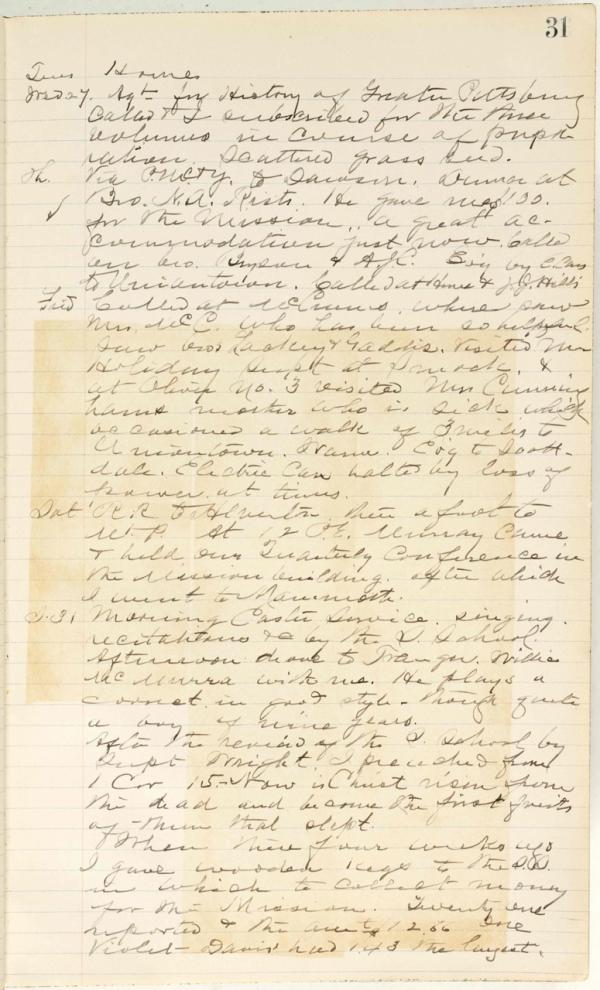 31
Tues Home
Wed 27. Agt for History of Greater Pittsburg
Called & I subscribed for the three
volumes in course of prepa
ration. Scattered grass seed.
Th. Via P. McK & Y. to Dawson. Dinner at
Bro. N.A. Rist's. He gave me $100.
for the Mission, a great ac-
commodation just now. Called
on Bro. Bryson & A.J.C. Evg by
to Uniontown. Called at Howe & J.J. Hill's
Frid Called at where saw
Mrs. McC. who has been so
Saw Bros Lackey & Gaddis. Visited Mr
Holiday Supt at & 
at Oliver No. 3 visited Mrs Cunning
hams mother who is sick which
occasioned a walk of 3 miles to
Uniontown. Evg to Scott-
dale. Electric Car halted by loss of
power at times.
Sat R.R. to Alverton, then afoot to
Mt. P. At 12 P.E. Murray came
& held our Quarterly Conference in
the Mission building. after which
I went to Mammoth.
S. 31 Morning Easter Service. singing.
recitations &c by the S. School.
Afternoon drove to Trauger. Willie
McMurra with me. He plays a
cornet in good style - though quite
a boy of nine years.
After the review of the S. School by
Supt Wright. I preached from
1 Cor 15 - Now is Christ risen from
the dead and become the first fruits
of them that slept.
When there four weeks ago
I gave wooden kegs to the S.S.
in which to collect money
for the Mission. Twenty one
reported & the amt 12.66 One
Violet Davis had 1.43 the largest.